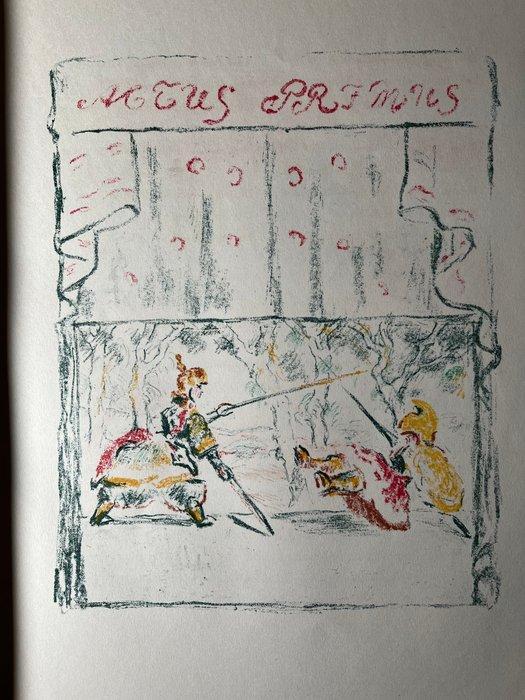 ACTUS PRIMUS